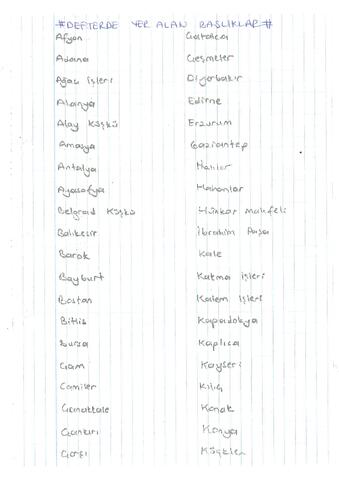 #DEFTERDE YER ALAN BAŞLIKLAR#
Afyon
Adana
Ağaç işleri
Alanya
Alay Köşkü
Amasya
Antalya
Ayasofya
Belgrad Köşkü
Balıkesir
Barok
Bayburt
Bostan
Bitlis
Bursa
Cam
Camiler
Çanakkale
Çankırı
Çarşı
Çatalca
Çeşmeler
Diyarbakır
Edirne
Erzurum
Gaziantep
Hanlar
Hamamlar
Hünkar Mahfeli
İbrahim Paşa
Kale
Katma işleri
Kalem işleri
Kapadokya
Kaplıca
Kayseri
Kılıç
Konak
Konya
Köşkler